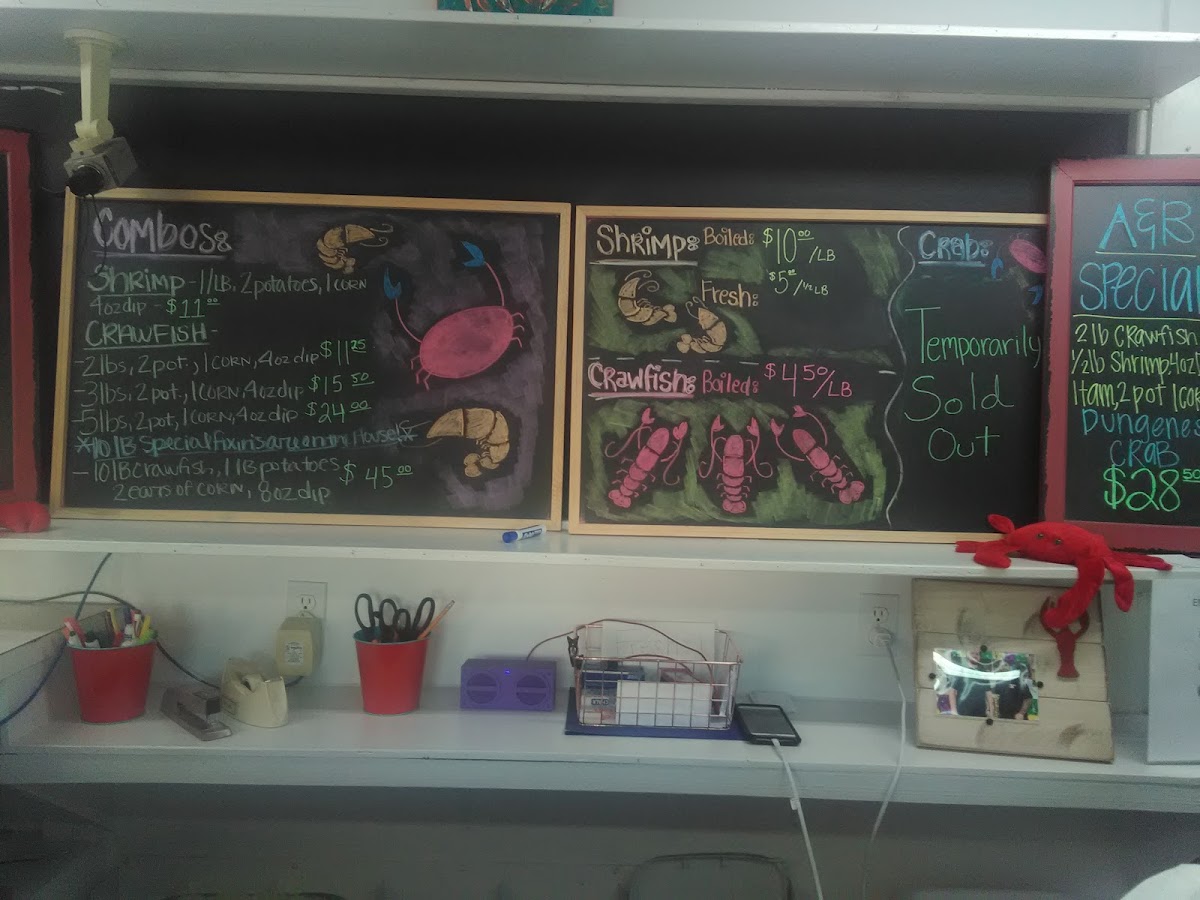 Combos:
Shrimp - 1/LB, 2 potatoes, 1 CORN
4oz dip - $11.00
CRAWFISH -
-2lbs, 2pot., 1 CORN, 4oz dip $11.25
-3lbs, 2pot, 1 CORN, 4oz dip $15.50
-5lbs, 2pot, 1 CORN, 4oz dip $24.00
*10 lB special fixins are on the House!*
- 10 lB crawfish, 1 lB potatoes $45.00
2 ears of CORN, 8oz dip
Shrimp: Boiled: $10.00/LB
$5.00/½ LB
Fresh:
Crawfish: Boiled: $4.50/LB
Crab:
Temporarily
Sold
Out
A&B
SPECIAL
2 lb Crawfish
½lb Shrimp, 4oz
1 tam, 2 pot 1 cor
Dungenes
CRAB
$28.50